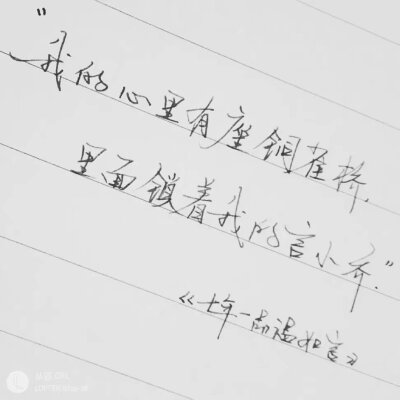 “我的心里有座铜雀桥.
里面锁着我的言小乔.”
《七年一顾温如言》